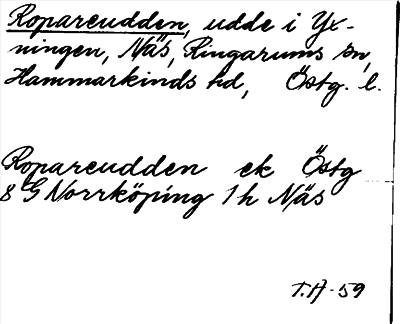 Ropareudden, udde i Yx-
ningen, Näs, Ringarums sn,
Hammarkinds hd, Östg. l.
Ropareudden ek Östg
8 G Norrköping 1h Näs
T.A-59